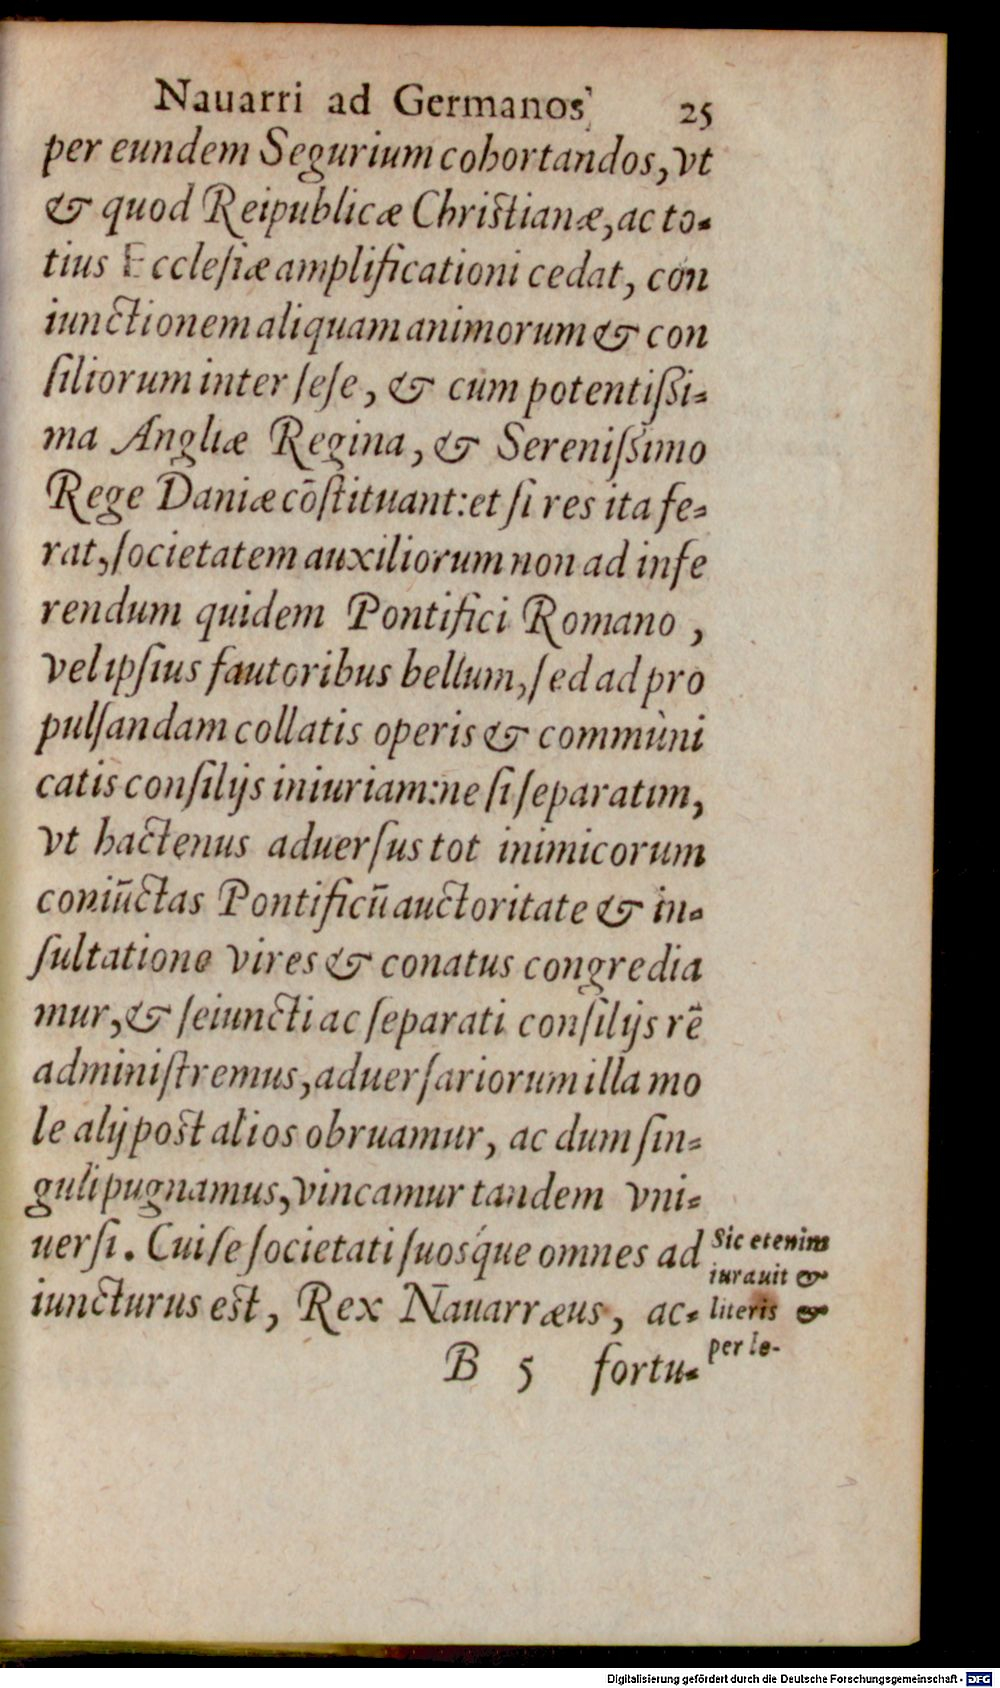 Nauarri ad Germanos 25
per eundem Segurium cohortandos, vt
& quod Reipublicæ Christianæ, ac to-
tius Ecclesiæ amplificationi cedat, con
iunctionem aliquam animorum & con
siliorum inter sese, & cum potentißi-
ma Angliæ Regina, & Serenißimo
Rege Daniæ cōstituant: et si res ita fe-
rat, societatem auxiliorum non ad infe
rendum quidem Pontifici Romano,
vel ipsius fautoribus bellum, sed ad pro
pulsandam collatis operis & communi
catis consilijs iniuriam: ne si separatim,
vt hactenus aduersus tot inimicorum
coniūctas Pontificū auctoritate & in-
sultatione vires & conatus congredia
mur, & seiuncti ac separati consilijs rē
administremus, aduersariorum illa mo
le alij post alios obruamur, ac dum sin-
guli pugnamus, vincamur tandem vni-
uersi. Cui se societati suosq́ue omnes ad
iuncturus est, Rex Nauarræus, ac-
Sic etenim
iurauit &
literis &
per le-
B 5 fortu-
Digitalisierung gefördert durch die Deutsche Forschungsgemeinschaft - DFG